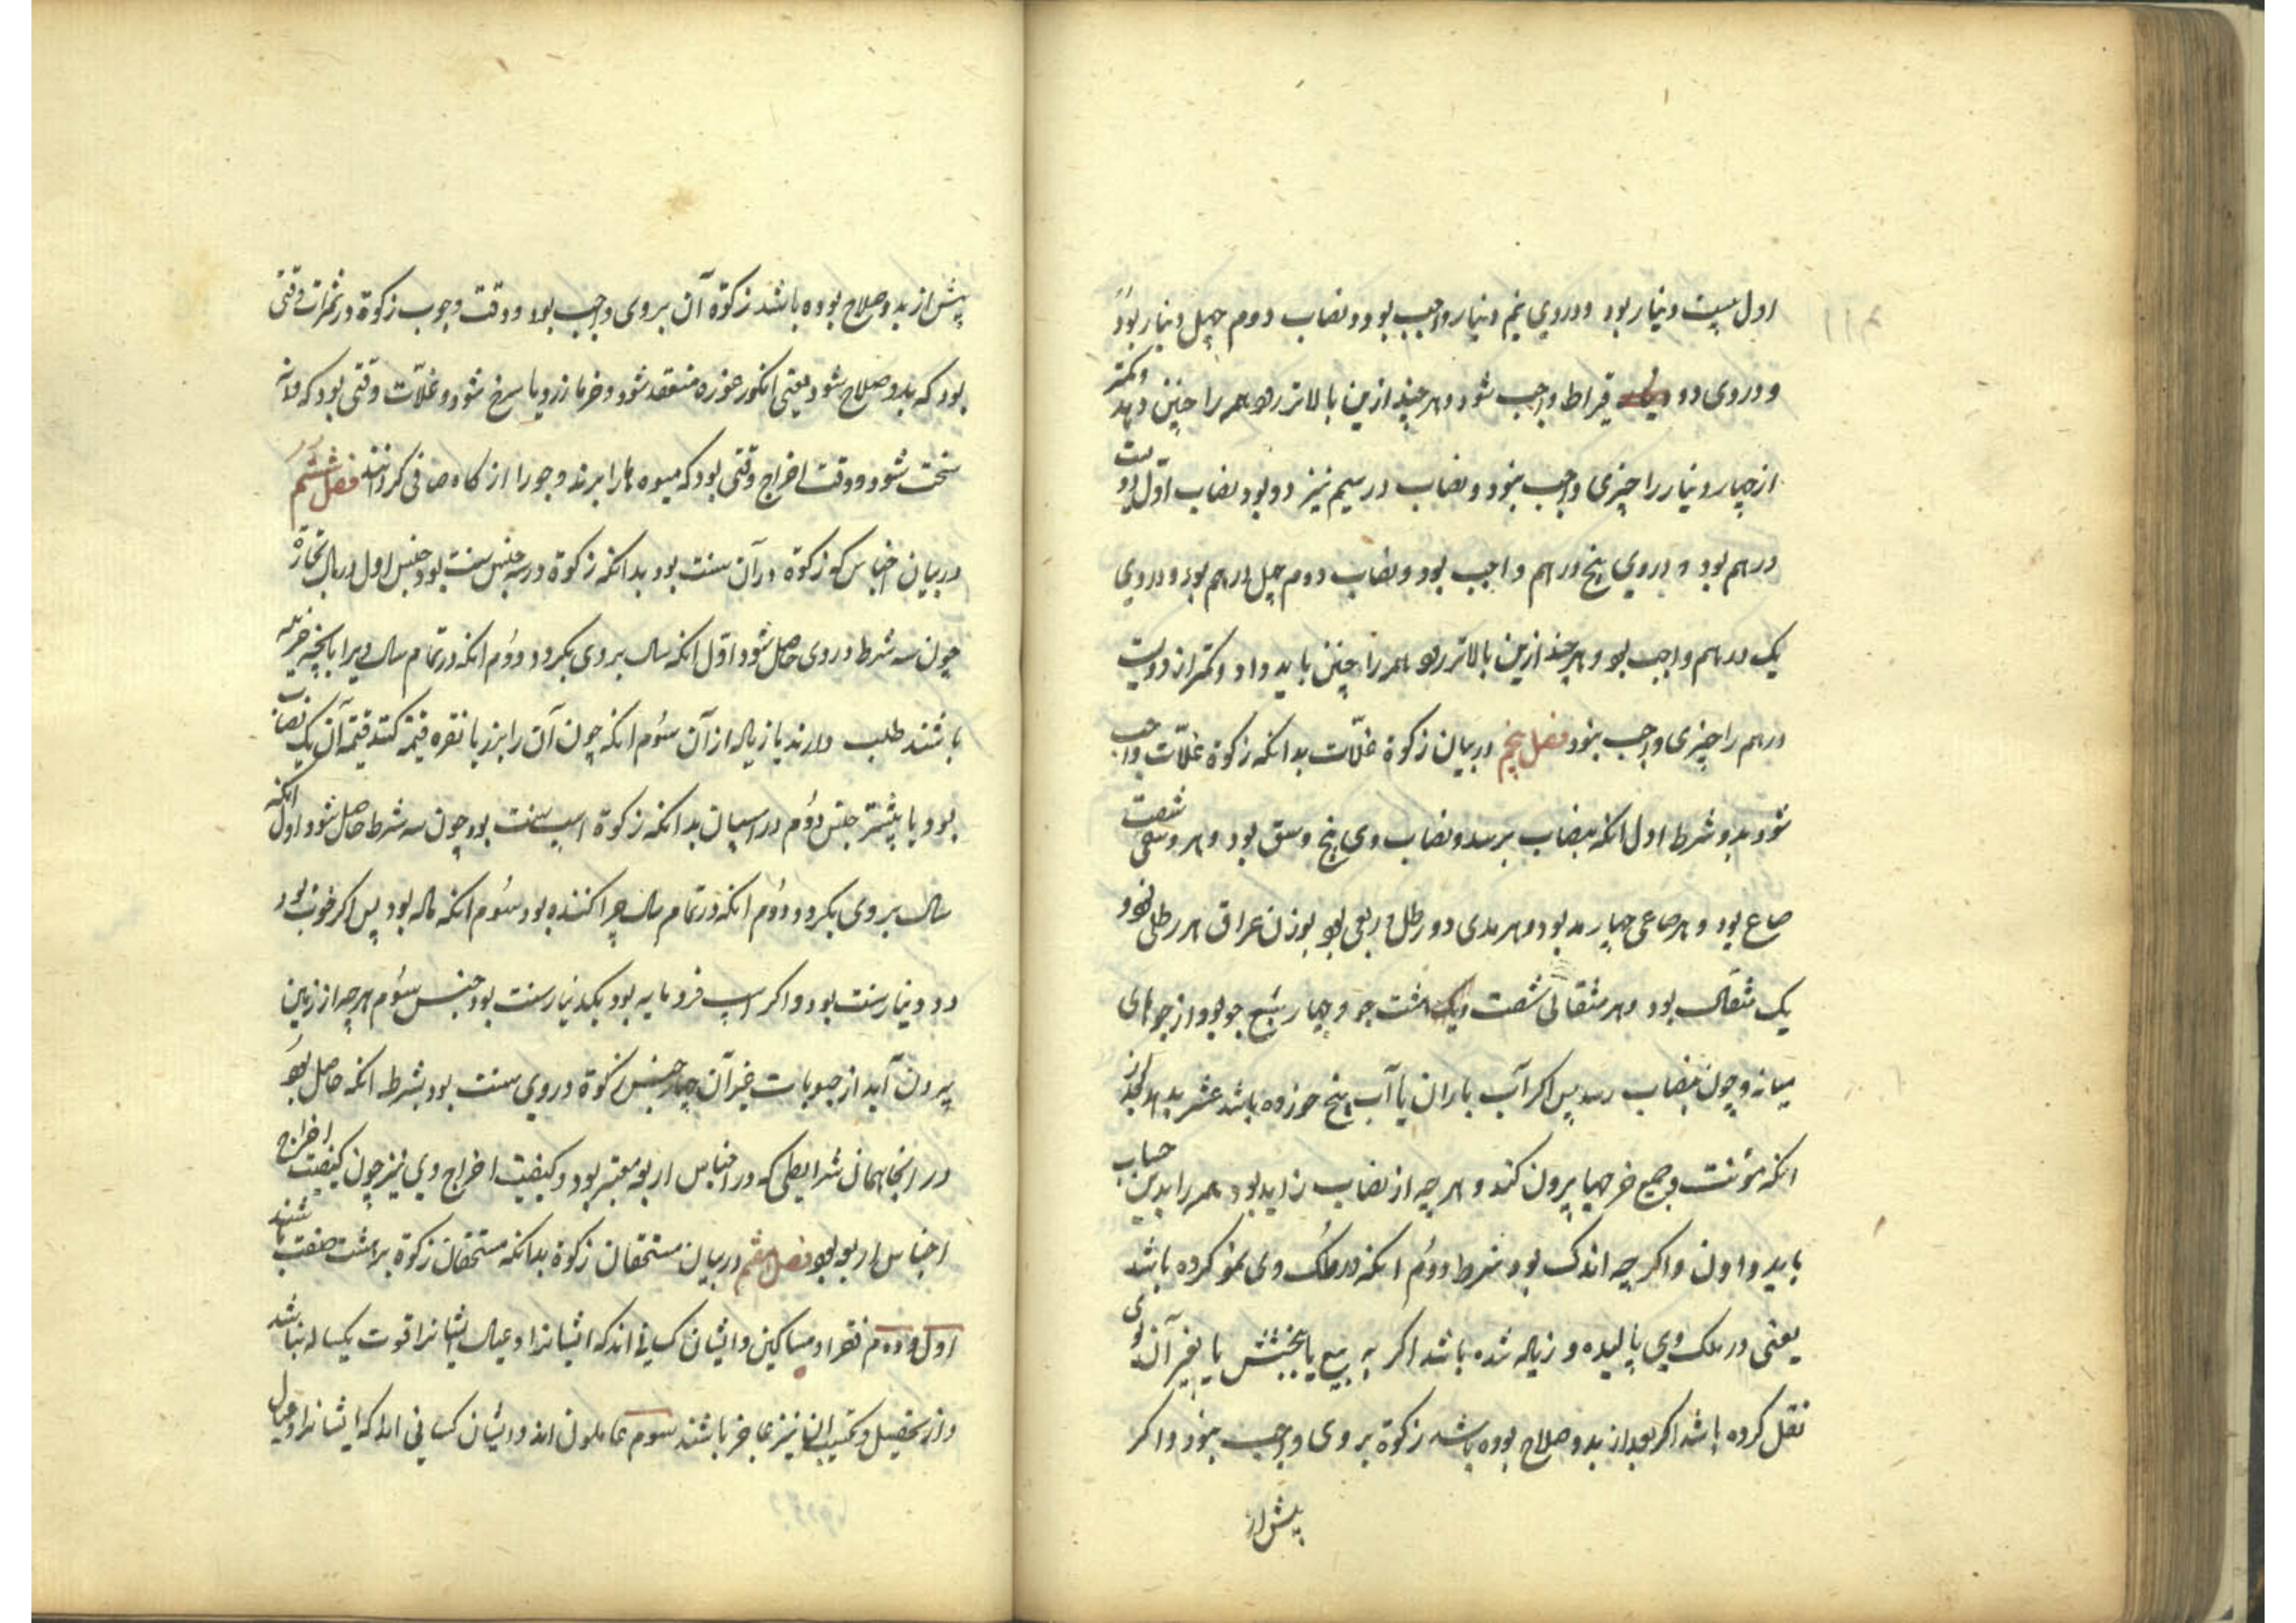 اول بیست دینار بود و در وی نیم دینار واجب بود و نصاب دوم چهل دینار بود
و در وی دو قیراط واجب شود و هر چند ازین بالاتر رود همه را چنین دهد و کمتر
از چهار دینار را چیزی واجب نبود و نصاب در سیم نیز دو بود نصاب اول دویست
درهم بود و در وی پنج درهم واجب بود و نصاب دوم چهل درهم بود و در وی
یک درهم واجب بود و هر چند ازین بالاتر رود همه را چنین باید داد و کمتر از دویست
درهم را چیزی واجب نبود فصل پنجم در بیان زکوة غلّات بدانکه زکوة غلّات واجب
شود بدو شرط اول انکه بنصاب برسد و نصاب وی پنج وسق بود و هر وسقی شصت
صاع بود و هر صاعی چهار مد بود و هر مدی دو رطل و ربعی بود بوزن عراق هر رطلی نود و
یک مثقال بود و هر مثقالی شصت و هشت جو و چهار سُبع جو بود از جوهای
میانه و چون بنصاب رسد پس اکر آب باران یا آب پنج خورده باشد عشر بدهد بعد از
انکه مؤنت و جمیع خرجها بیرون کند و هر چه از نصاب زاید بود همه را بدین حساب
باید دادن و اکر چه اندک بود شرط دوُم انکه در ملک وی نمو کرده باشد
یعنی در ملک وی بالیده و زیاده شده باشد اکر به بیع یا بخشش یا بغیر آن بوی
نقل کرده باشد اکر بعد از بدو صلاح بوده باشد زکوة بر وی واجب نبود و اکر
پیش از
پیش از بدو صلاح بوده باشد زکوة آن بر وی واجب بود و وقت وجوب زکوة در ثمرات وقتی
بود که بدو صلاح شود یعنی انکور غوره منعقد شود و خرما زرد یا سرخ شود و غلّات وقتی بود که دانه
سخت شود و وقت اخراج وقتی بود که میوه ها را ببرند و جو را از کاه صافی کردانند فصل ششم
در بیان اجناس که زکوة در آن سنت بود بدانکه زکوة در سه جنس سنت بود جنس اول در مال تجارة
چون سه شرط در وی حاصل شود اوّل انکه سال بر وی بکردد دوُم انکه در تمام سال ویرا بانچه خریده
باشند طلب دارند یا زیاده از آن سوُم انکه چون آن را بزر یا نقره قیمة کنند قیمة آن یک نصاب
بود یا بیشتر جنس دوُم در اسپان بدانکه زکوة اسپ سنت بود چون سه شرط حاصل شود اول انکه
سال بر وی بکردد دوُم انکه در تمام سال چرا کننده بود سوُم انکه ماده بود پس اکر خوب بود
دو دینار سنت بود و اکر اسپ فرومایه بود یکدینار سنت بود جنس سوُم هر چه از زمین
بیرون آید از حبوبات غیر آن چهار جنس زکوة در وی سنت بود بشرط انکه حاصل بود
در انجا همان شرایطی که در اجناس اربعه معتبر بود و کیفیت اخراج وی نیز چون کیفیت اخراج
اجناس اربعه بود فصل هفتم در بیان مستحقان زکوة بدانکه مستحقان زکوة بر هشت صنف باشند
اول و دوم فقرا و مساکین و ایشان کسانی اند که ایشانرا و عیال ایشانرا قوت یکساله نباشد
و از تحصیل و کسب آن نیز عاجز باشند سوم عاملون اند و ایشان کسانی اند که ایشانرا و عیال